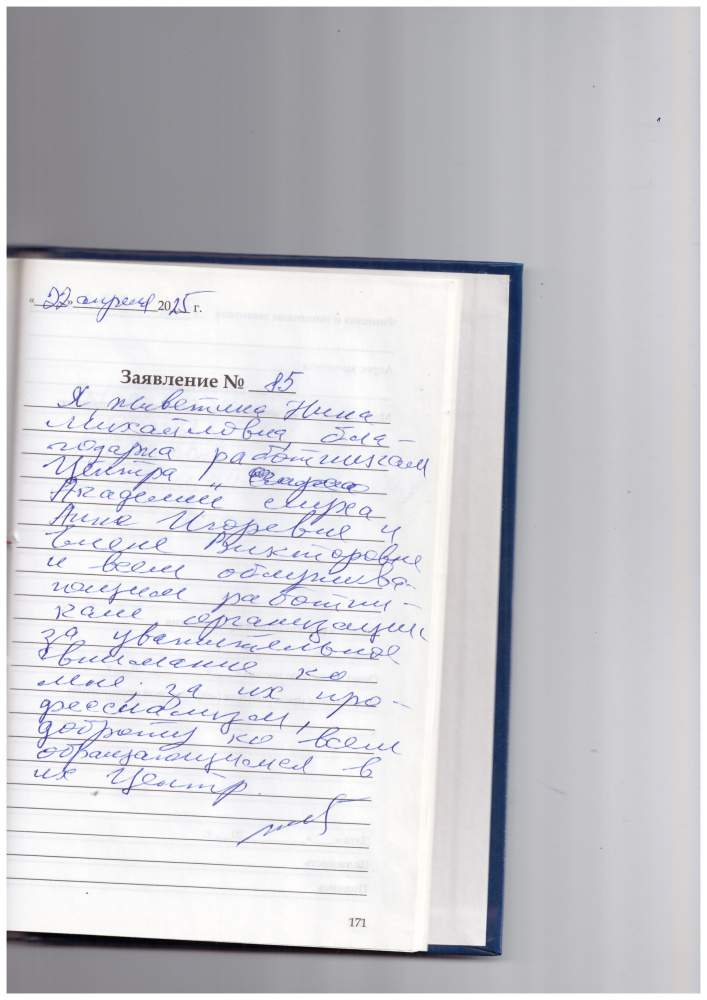 «22» апреля 2025 г.
Заявление № 85
Я Живетина Нина
Михайловна, бла-
годарна работникам
Центра "
Академии слуха"
Анне Игоревне и
Елене Викторовне
и всем обслужива-
ющим работни-
кам организации
за уважительное
внимание ко
мне; за их про-
фессиализм,
доброту ко всем
обращающимся в
их Центр.
171